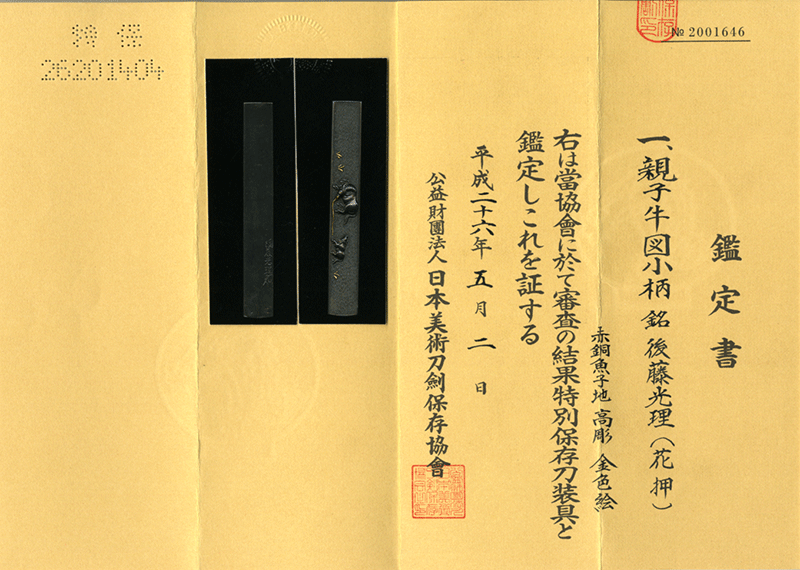 № 2001646
鑑定書
一、親子牛図小柄 銘 後藤光理(花押)
赤銅魚子地 高彫 金色絵
右は當協會に於て審査の結果特別保存刀装具と
鑑定しこれを証する
平成二十六年 五月 二日
公益財團法人 日本美術刀劍保存協會
特保
26201404